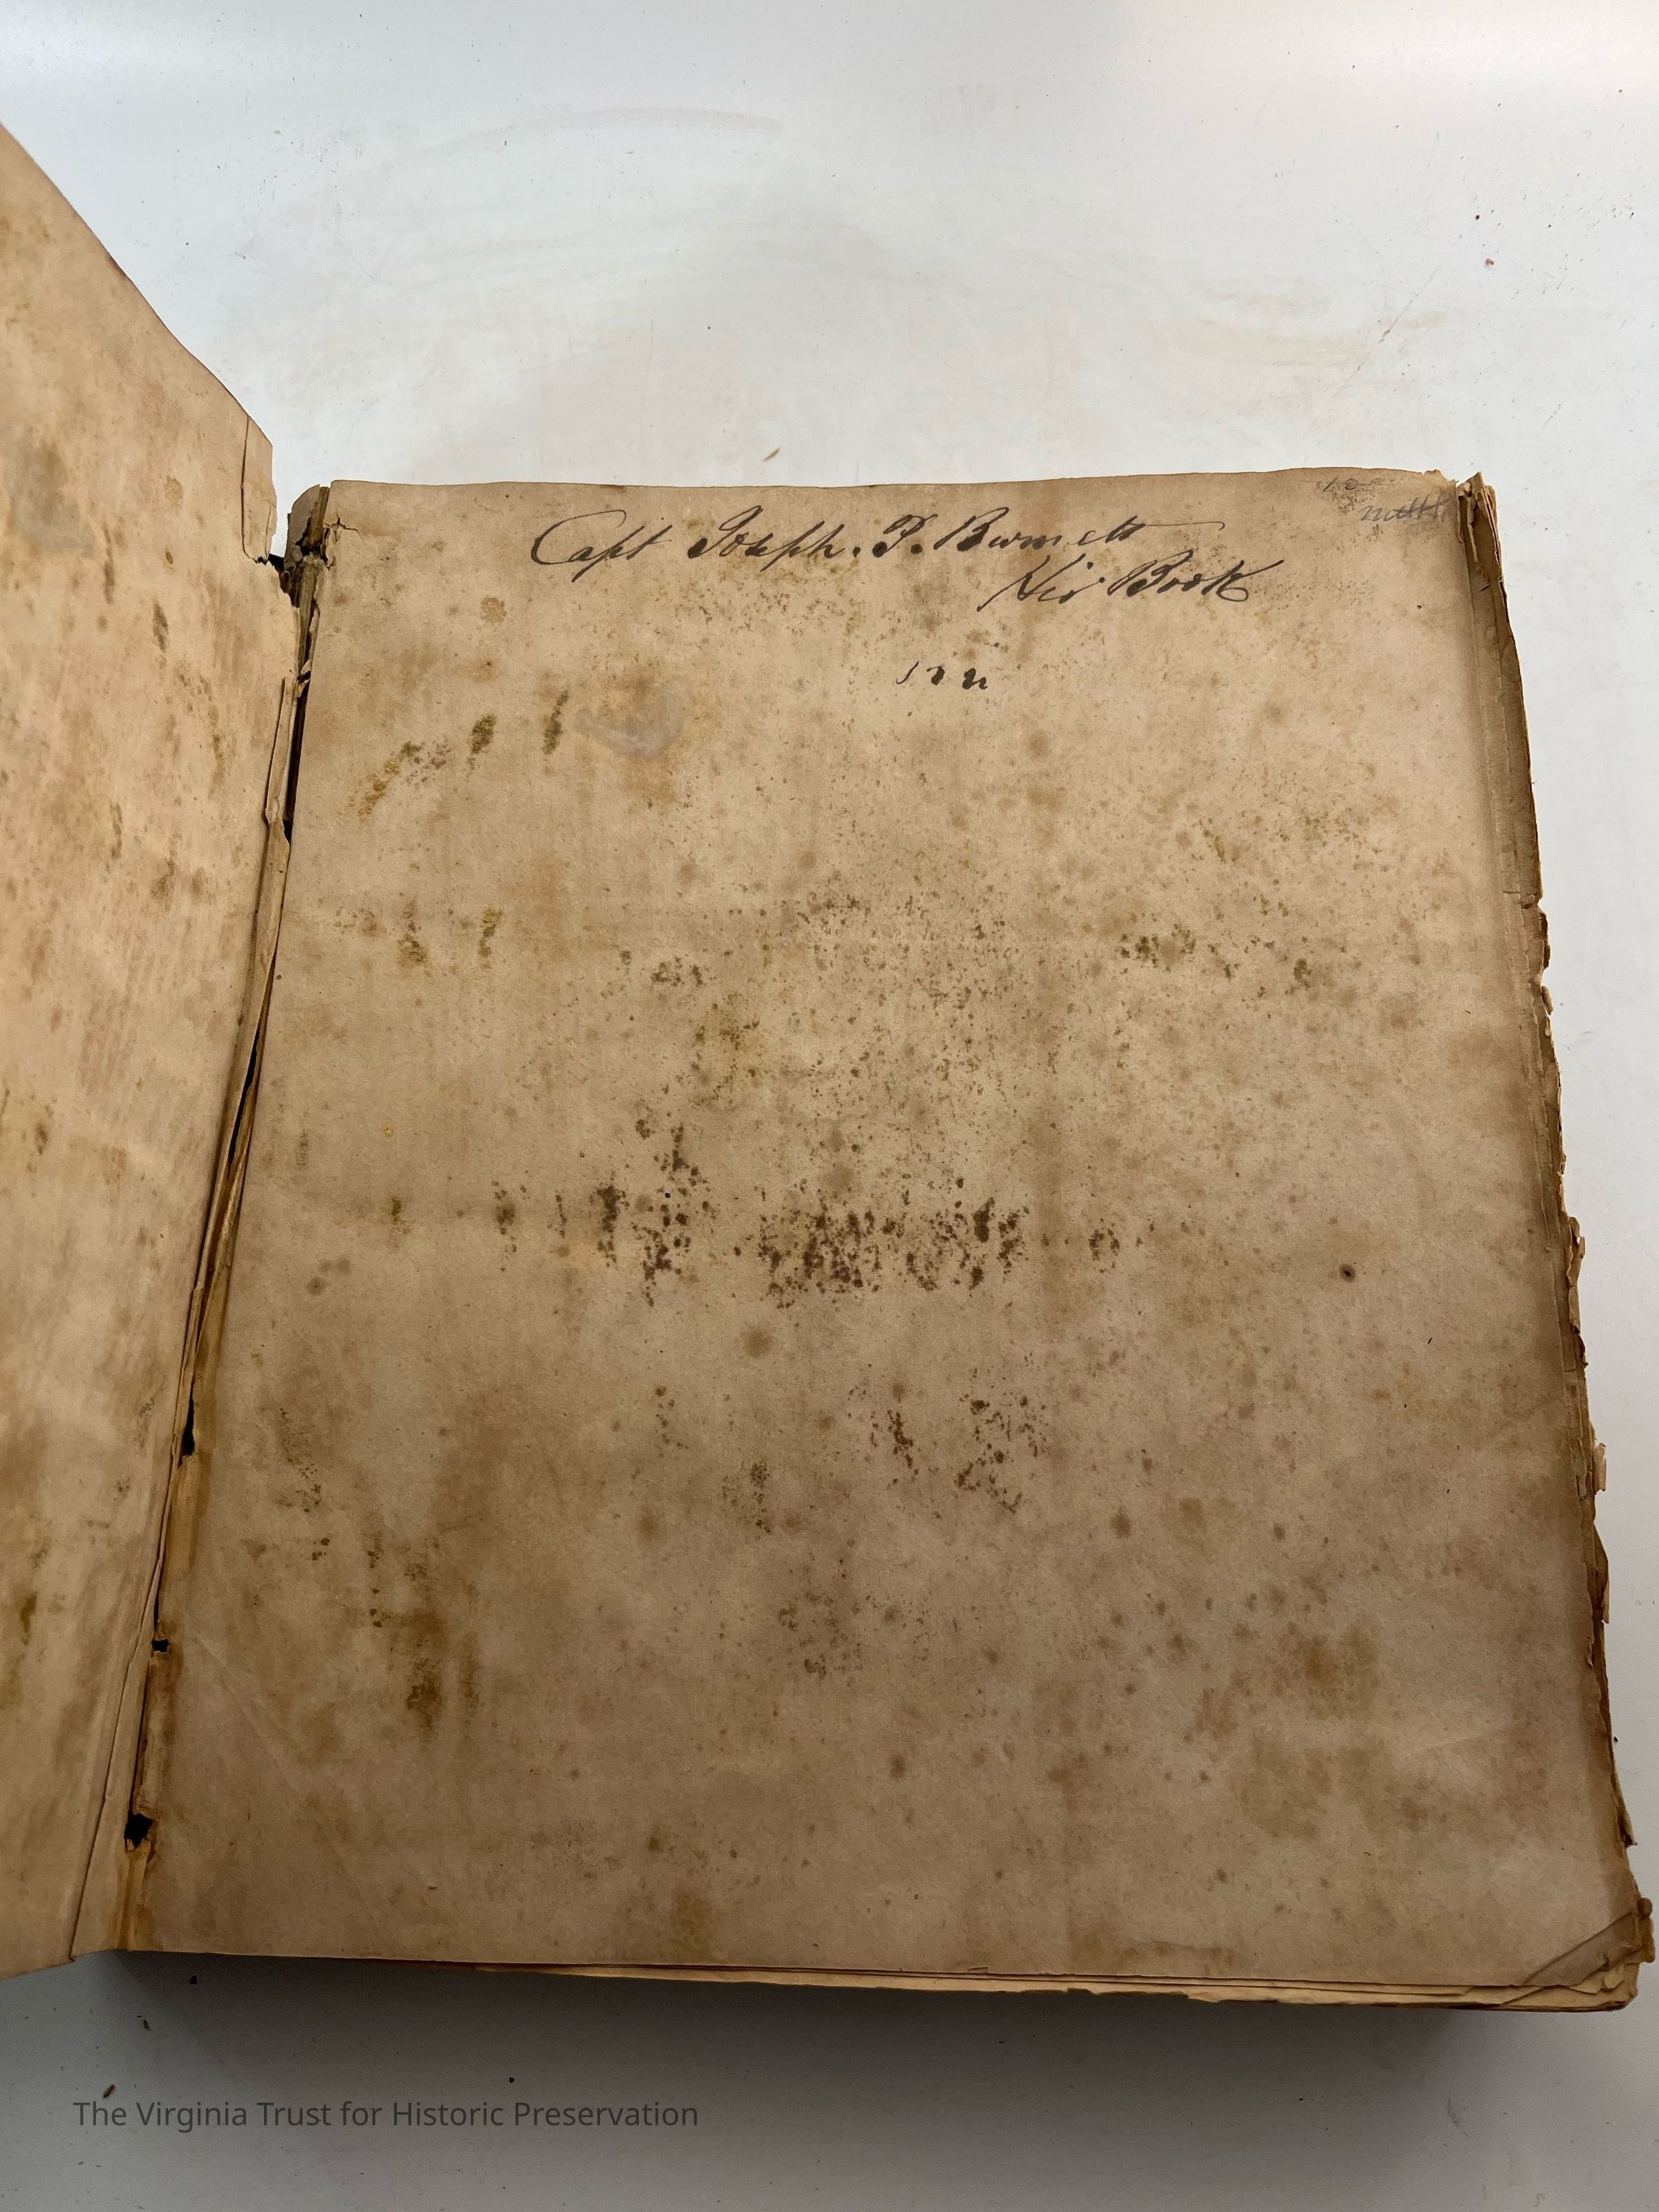 Capt Joseph. P. Burnett
His Book
The Virginia Trust for Historic Preservation